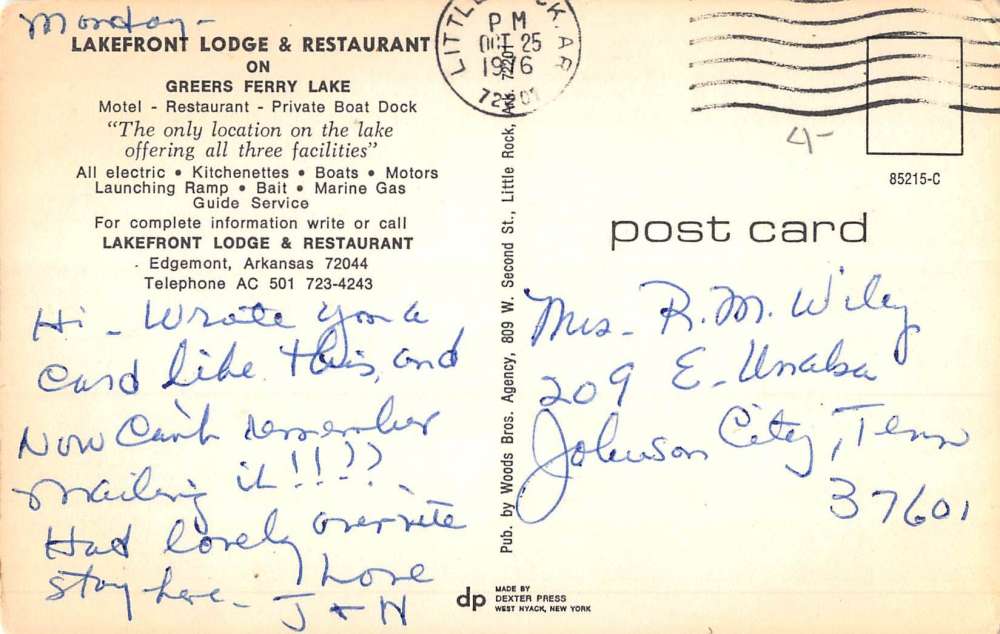 Monday -
LAKEFRONT LODGE & RESTAURANT
ON
GREERS FERRY LAKE
Motel - Restaurant - Private Boat Dock
“The only location on the lake
offering all three facilities”
All electric • Kitchenettes • Boats • Motors
Launching Ramp • Bait • Marine Gas
Guide Service
For complete information write or call
LAKEFRONT LODGE & RESTAURANT
Edgemont, Arkansas 72044
Telephone AC 501 723-4243
Hi - Wrote you a
Card like this, and
Now Can't remember
mailing it!!??
Had lovely overnite
stay here - Love
J + N
Pub. by Woods Bros. Agency, 809 W. Second St., Little Rock, Ark. 72201
LITTLE ROCK, AR
PM
OCT 25
1976
4-
85215-C
post card
Mrs. R. M. Wiley
209 E. Unaka
Johnson City, Tenn
37601
dp
MADE BY
DEXTER PRESS
WEST NYACK, NEW YORK